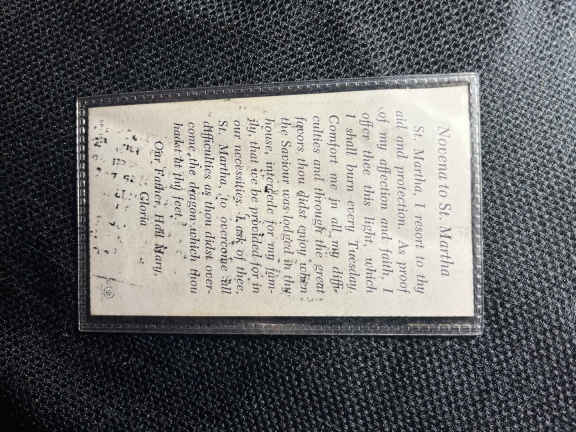 Novena to St. Martha
St. Martha, I resort to thy
aid and protection. As proof
of my affection and faith, I
offer thee this light, which
I shall burn every Tuesday.
Comfort me in all my diffi-
culties and through the great
favors thou didst enjoy when
the Saviour was lodged in thy
house, intercede for my fam-
ily, that we be provided for in
our necessities. I ask of thee,
St. Martha, to overcome all
difficulties as thou didst over-
come the dragon which thou
hadst at thy feet.
Our Father, Hail Mary,
Gloria